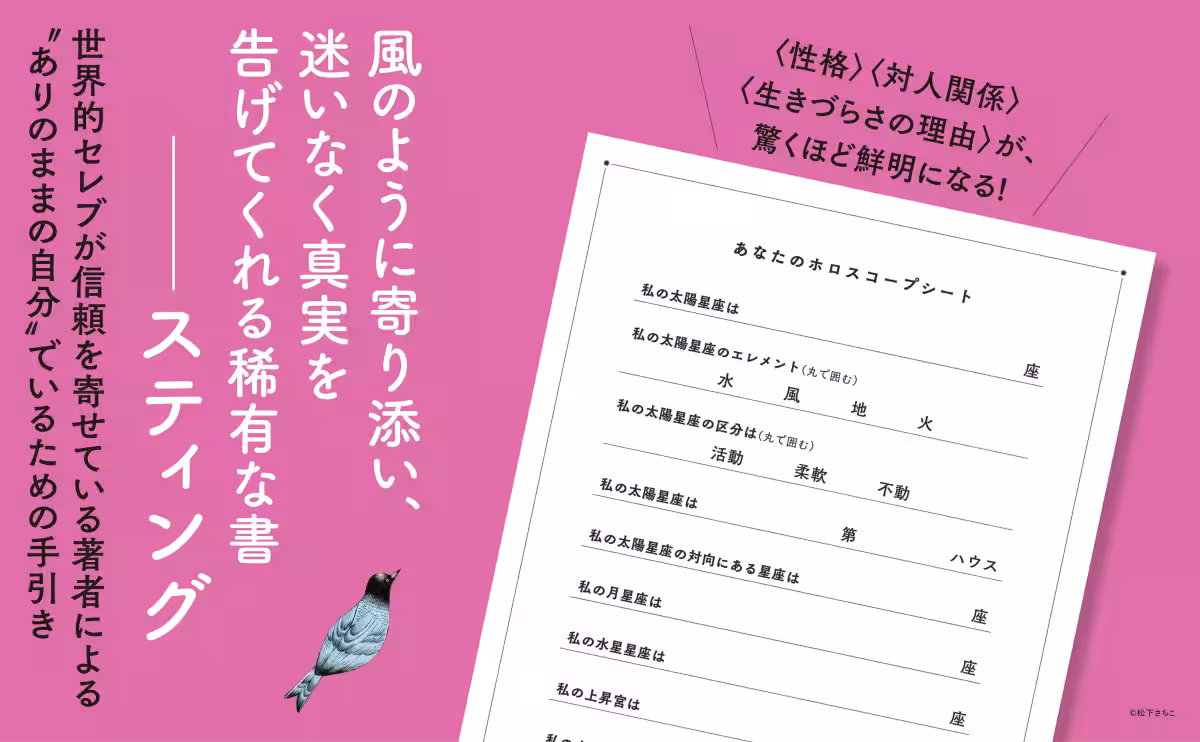 風のように寄り添い、
迷いなく真実を
告げてくれる稀有な書
── スティング
世界的セレブが信頼を寄せている著者による
〝ありのままの自分〟でいるための手引き
〈性格〉〈対人関係〉
〈生きづらさの理由〉が、
驚くほど鮮明になる!
あなたのホロスコープシート
私の太陽星座は 座
私の太陽星座のエレメント(丸で囲む)
水 風 地 火
私の太陽星座の区分は(丸で囲む)
活動 柔軟 不動
私の太陽星座は 第 ハウス
私の太陽星座の対向にある星座は 座
私の月星座は 座
私の水星星座は 座
私の上昇宮は
©松下さちこ